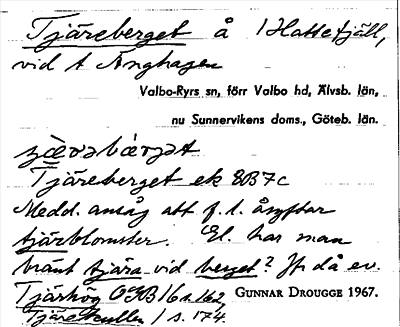 Tjäreberget å 1 Hattefjäll,
vid t Änghagen
Valbo-Ryrs sn, förr Valbo hd, Älvsb. län,
nu Sunnervikens doms., Göteb. län.
Tjäreberget ek 8B7c
Medd. ansåg att f. l. åsyftar
tjärblomster. El. har man
bränt tjära vid berget? Jfr då ev.
Tjärhog OGB 16 s. 162, GUNNAR DROUGGE 1967.
Tjärekullen 1 s. 174.